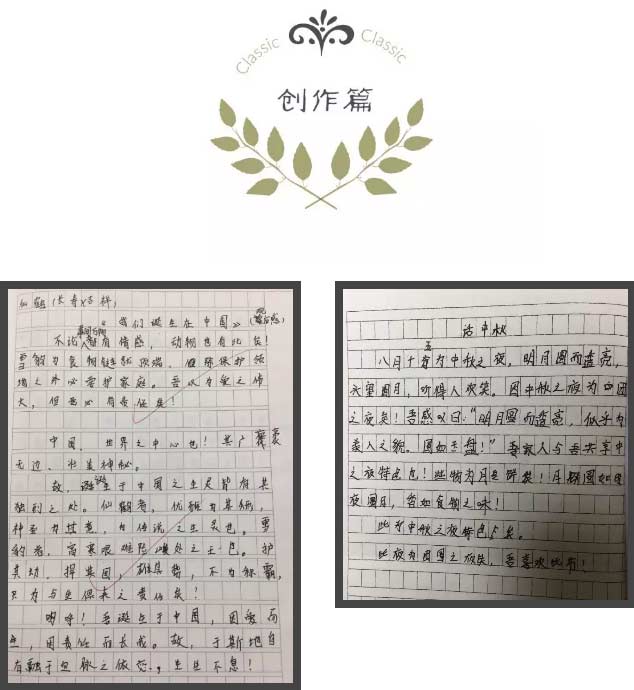 Classic
Classic
创作篇
仙鹤(长寿又吉祥)
《我们诞生在中国》
不论人有情感,动物也有此矣!
雪豹为食物链
墙之外必需护家庭。吾以为爱之伟
大,但吾必有责任矣!
中国,世界之中心也!其广袤
无边、壮美神秘。
故,诞生于中国之生灵皆有其
独到之处。仙鹤者,优雅为其
神圣为其意,为传说之生灵也。雪
豹者,高寒艰难险峻处之王也。护
其幼,捍其国,雄其势,不为称霸,
只为与生俱来之责任矣!
呜呼!吾诞生于中国,因爱而
生,因责任而长成。故,于斯地自
有融于血脉之依恋,生生不息!
话中秋
八月十五为中秋之夜,明月圆而蓝亮,
长望圆月,听得人欢笑。因中秋之夜为团
之夜矣!吾感叹曰:“明月圆而蓝亮,似乎为
美人之貌。圆如玉盘!”吾家人与吾共享中
之夜特色也!此物为月饼矣!月
夜圆月,皆如食物之味!
此为中秋之夜特色点矣。
此夜为团圆之夜矣,吾喜欢此节!